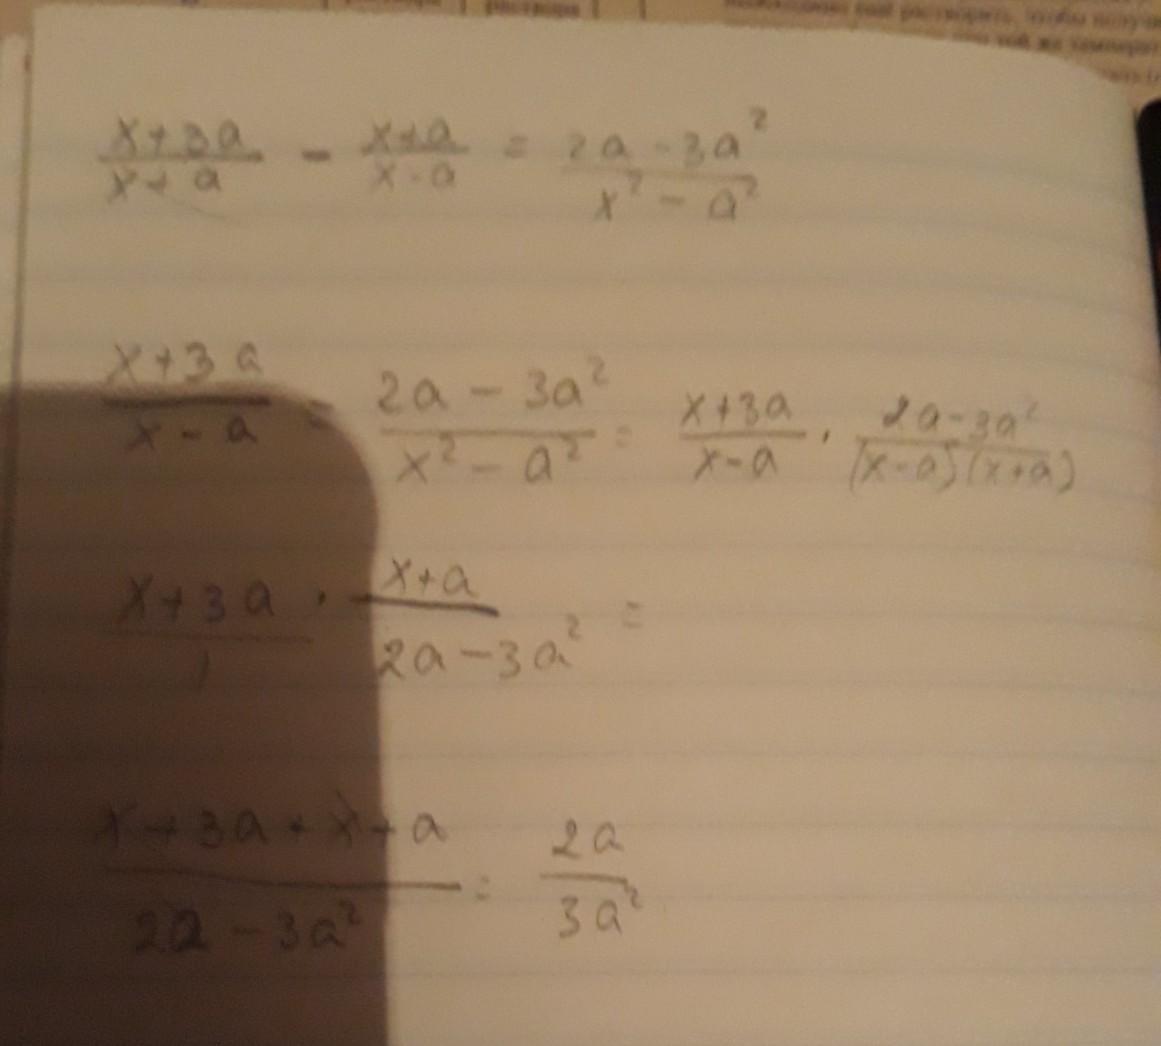 (x+3a)/(x+a) - (x+a)/(x-a) = (2a-3a²)/(x²-a²)
(x+3a)/(x-a) - (2a-3a²)/(x²-a²) = (x+3a)/(x-a) · (2a-3a²)/((x-a)(x+a))
(x+3a)/1 · (x+a)/(2a-3a²) =
(x+3a+x+a)/(2a-3a²) = 2a/3a²